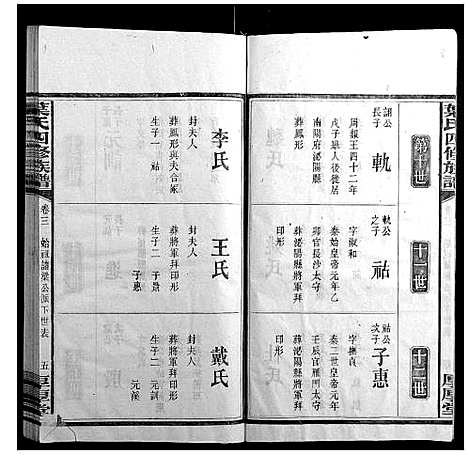 葉氏四修族譜
第十世
諸公長子
軌
周赧王四十二年
戊子舉人後徙居
南陽府泌陽縣
封夫人
李氏
葬鳳形與夫合冢
生子一 祜
十一世
軌公之子
祜
字淑和
秦始皇帝元年乙
卯官長沙太守
葬泌陽縣將軍拜
印形
封夫人
王氏
葬將軍拜印形
生子二 子景
子惠
十二世
祜公次子
子惠
字撫貞
秦二世皇帝元年
壬辰官雁門太守
葬泌陽縣將軍拜
印形
封夫人
戴氏
葬將軍拜印形
生子二 元訓
元溪
葉氏四修族譜
卷三
始祖諸梁公派下世表
五
厚堂